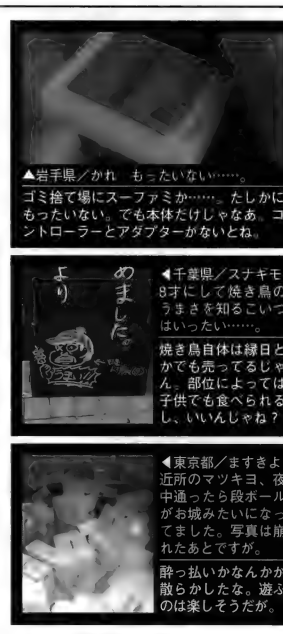 ▲岩手県/かれ　もったいない……。
ゴミ捨て場にスーファミか……。たしかに
もったいない。でも本体だけじゃなあ。コ
ントローラーとアダプターがないとね。
めました。
より
うまい!!
◀千葉県/スナギモ
8才にして焼き鳥の
うまさを知るこいつ
はいったい……。
焼き鳥自体は縁日と
かでも売ってるじゃ
ん。部位によっては
子供でも食べられる
し、いいんじゃね?
◀東京都/ますきよ
近所のマツキヨ、夜
中通ったら段ボール
がお城みたいになっ
てました。写真は崩
れたあとですが。
酔っ払いかなんかが
散らかしたな。遊ぶ
のは楽しそうだが。